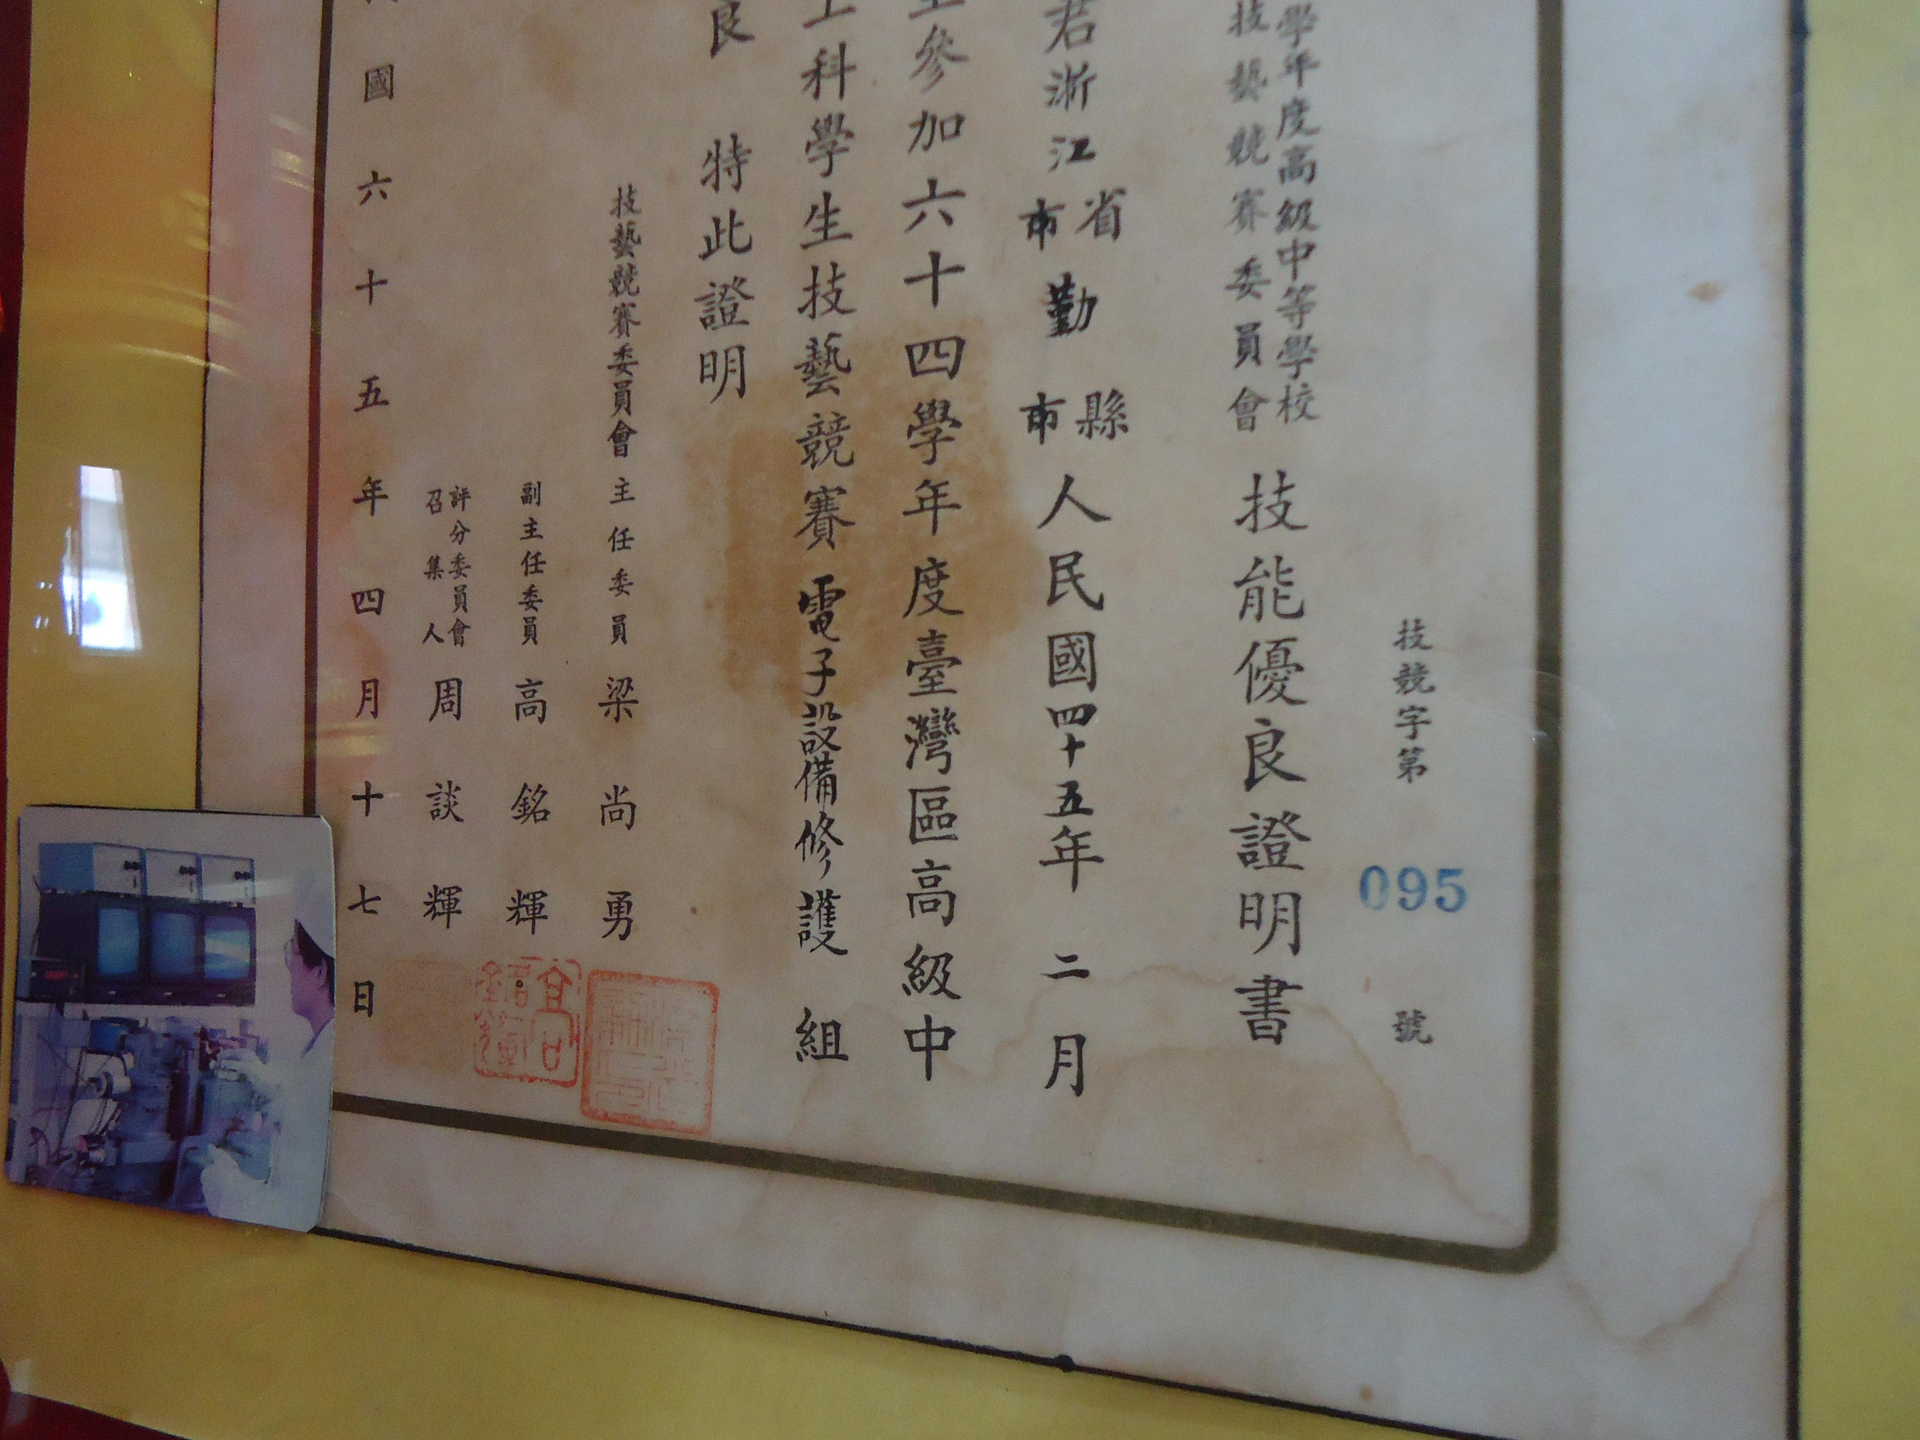 技競字第 095 號
學年度高級中等學校
技藝競賽委員會
技能優良證明書
君浙江省市勤縣市人民國四十五年二月
參加六十四學年度臺灣區高級中
工科學生技藝競賽電子設備修護組
良 特此證明
技藝競賽委員會主任委員 梁尚勇
副主任委員 高銘輝
評分委員會召集人 周談輝
國六十五年四月十七日